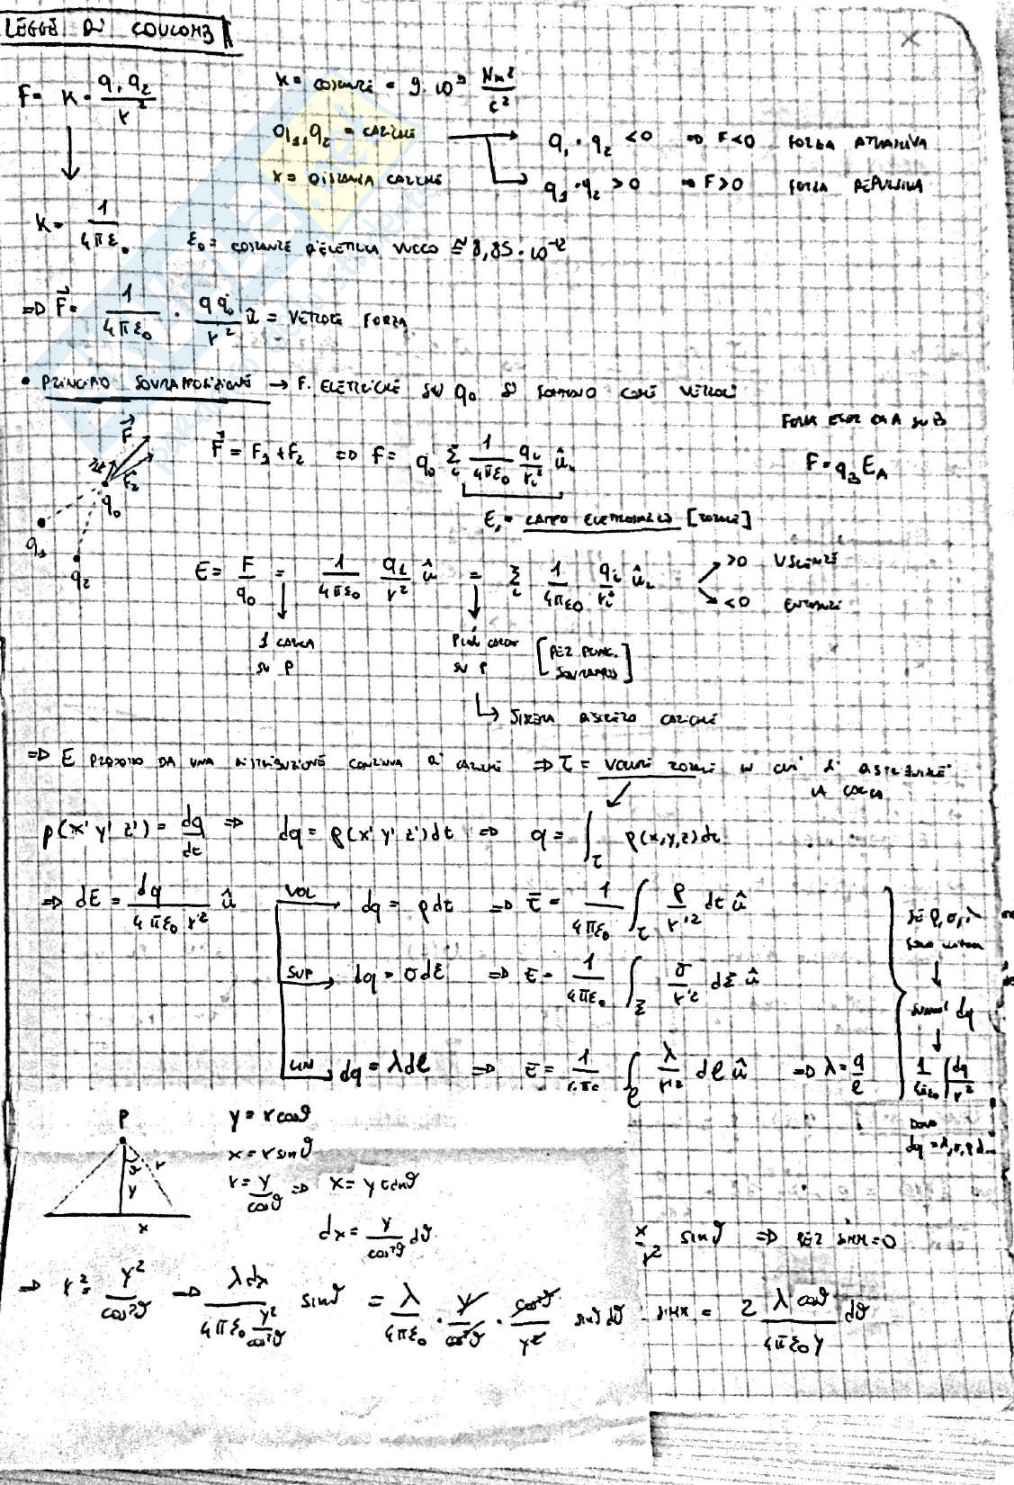 LEGGE DI COULOMB
F = K · q₁ q₂ / r²
K = COSTANTE = 9 · 10⁹ Nm²/C²
q₁, q₂ = CARICHE → q₁ · q₂ < 0 ⇒ F<0 FORZA ATTRATTIVA
r = DISTANZA CARICHE → q₁ · q₂ > 0 ⇒ F>0 FORZA REPULSIVA
K = 1 / 4πε₀
ε₀ = COSTANTE DIELETTRICA VUOTO ≅ 8,85 · 10⁻¹²
⇒ F⃗ = 1/4πε₀ · q q₀/r² û = VETTORE FORZA
• PRINCIPIO SOVRAPPOSIZIONE → F. ELETTRICHE SU q₀ SI SOMMANO COME VETTORI
F⃗ F₂ q₀ q₁ q₂
F⃗ = F₁ + F₂ ⇒ F = q₀ Σᵢ 1/4πε₀ qᵢ/rᵢ² ûᵢ
FORZA ESER DA A SU B
F = q_B E_A
E₁ = CAMPO ELETTROSTATICO [TOTALE]
E = F/q₀ = 1/4πε₀ qᵢ/r² û = Σᵢ 1/4πε₀ qᵢ/rᵢ² ûᵢ
>0 USCENTE
<0 ENTRANTE
1 CARICA
SU P
PIÙ CARICHE
SU P
[PER PRINC. SOVRAPPOS]
↳ SISTEMA DISCRETO CARICHE
⇒ E PRODOTTO DA UNA DISTRIBUZIONE CONTINUA DI CARICHE ⇒ τ = VOLUME TOTALE IN CUI È DISTRIBUITA
LA CARICA
ρ(x' y' z') = dq/dτ ⇒ dq = ρ(x' y' z')dτ ⇒ q = ∫τ ρ(x,y,z)dτ
⇒ dE = dq / 4πε₀ r² û
VOL → dq = ρdτ ⇒ E = 1/4πε₀ ∫τ ρ/r'² dτ û
SUP → dq = σdΣ ⇒ E = 1/4πε₀ ∫Σ σ/r'² dΣ û
LIN → dq = λdl ⇒ E = 1/4πε₀ ∫l λ/r'² dl û ⇒ λ = q/l
SE ρ, σ, λ
SONO
↓
dq
↓
1/4πε₀ ∫ dq/r²
DOVE
dq = λ, σ, ρ d
P
ϑ r
y
x
y = r cosϑ
x = r sinϑ
r = y/cosϑ ⇒ x = y tanϑ
dx = y/cos²ϑ dϑ
x/r² sinϑ ⇒ PER SIMM = 0
⇒ r² = y²/cos²ϑ ⇒ λdx / 4πε₀ y²/cos²ϑ sinϑ = λ/4πε₀ · y/cos²ϑ · cos²ϑ/y² sinϑ dϑ
SIMM = 2 λ cosϑ / 4πε₀ y dϑ